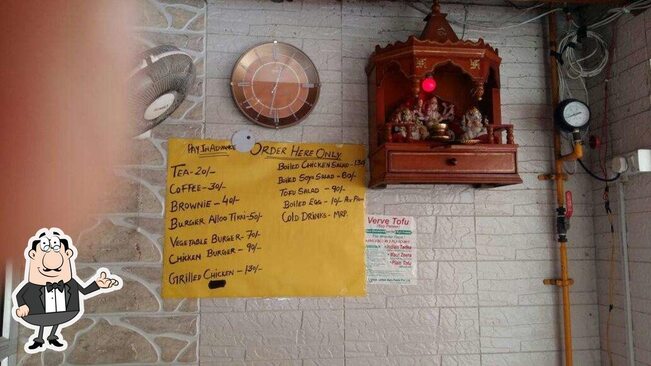 PAY IN ADVANCE ORDER HERE ONLY
TEA-20/-
COFFEE-30/-
BROWNIE-40/-
BURGER ALLOO TIKKI-50/-
VEGETABLE BURGER-70/-
CHICKEN BURGER-90/-
GRILLED CHICKEN-130/-
BOILED CHICKEN SALAD-130
BOILED SOYA SALAD-80/-
TOFU SALAD-90/-
BOILED EGG-10/-
COLD DRINKS-MRP.
Verve Tofu
(Soy Paneer)